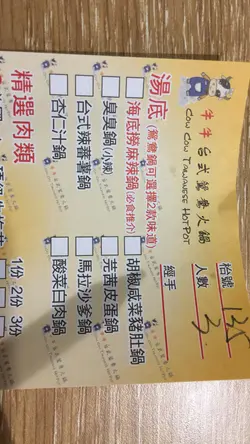 牛牛 台式鴛鴦火鍋
COW COW TAIWANESE HOTPOT
枱號
人數 3
經手
湯底 (鴛鴦鍋可選擇2款味道)
海底撈麻辣鍋(必食推介) 胡椒咸菜豬肚鍋
臭臭鍋(小辣) 芫茜皮蛋鍋
台式辣蕃薯鍋 馬拉沙爹鍋
杏仁汁鍋 酸菜白肉鍋
精選肉類 1份 2份 3份